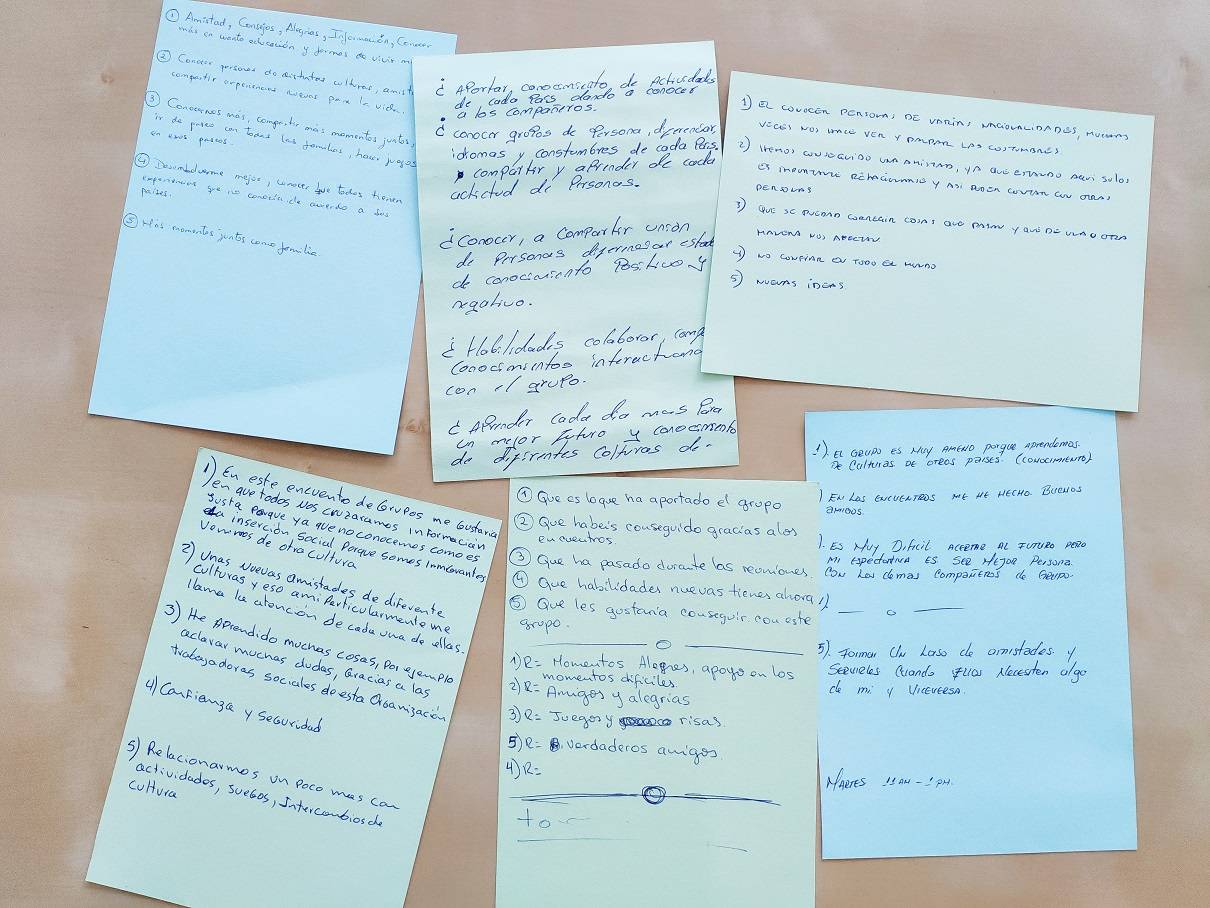 ① Amistad, Consejos, Alegrias, Información, Conocer
más en cuanto educación y formas de vivir
② Conocer personas de distintas culturas,
compartir experiencias nuevas para la vida.
③ Conocernos más, compartir más momentos juntos,
ir de paseo con todas las familias, hacer juegos
en esos paseos.
④ Desenvolverme mejor, conocer que todos tienen
experiencias que no conocía de acuerdo a sus
países.
⑤ Más momentos juntos como familia.
¿ Aportar, conocimiento de Actividades
de cada País dando a conocer
a los compañeros.
¿ conocer grupos de Persona, diferenciar,
idiomas y constumbres de cada País.
compartir y aprender de cada
actictud de Personas.
¿ Conocer, a compartir unión
de Personas
de conocimiento Positivo y
negativo.
¿ Habilidades colaborar,
conocimientos
con el grupo.
¿ Aprender cada dia mas Para
un mejor futuro y conocimento
de difirentes Colturas de.
1) EL CONOCER PERSONAS DE VARIAS NACIONALIDADES, MUCHAS
VECES NOS HACE VER Y PALPAR LAS COSTUMBRES
2) HEMOS CONSEGUIDO UNA AMISTAD, YA QUE ESTANDO AQUI SOLOS
ES IMPORTANTE Y ASI PODER CONTAR CON OTRAS
PERSONAS
3) QUE SE PUEDAN CORREGIR COSAS QUE PASAN Y QUE DE UNA U OTRA
MANERA NOS AFECTAN
4) NO CONFIAR EN TODO EL MUNDO
5) NUEVAS IDEAS
1) En este encuento de Grupos me Gustaria
en que todos Nos cruzaramos información
Justa Porque ya que no conocemos como es
la inserción Social Porque Somos Inmigrantes
Venimos de otra Cultura
2) Unas Nuevas amistades de diferente
culturas y eso ami Particularmente me
llama la atención de cada una de ellas.
3) He Aprendido muchas cosas, Por ejemplo
aclarar muchas dudas, Gracias a las
trabajadoras sociales de esta Organización
4) Confianza y Seguridad
5) Relacionarmos un poco mas con
actividades, Juegos, Intercambios de
Cultura
① Que es loque ha aportado el grupo
② Que habeis conseguido gracias alos
en cuentros.
③ Que ha pasado durante las reuniones.
④ Que habilidades nuevas tienes ahora
⑤ Que les gustaria conseguir con este
grupo.
1) R= Momentos Alegres, apoyo en los
momentos dificiles.
2) R= Amigos y alegrias
3) R= Juegos y risas.
5) R= verdaderos amigos
4) R=
to
1). EL GRUPO ES MUY AMENO porque aprendemos.
De Culturas DE OTROS PAISES. (CONOCIMIENTO)
) EN LOS ENCUENTROS ME HE HECHO BUENOS
amigos.
). ES MUY Dificil ACERTAR AL FUTURO PERO
MI Expectativa ES SER MEJOR Persona.
CON LOS demas Compañeros de GRUPO.
1). — o —
5). Formar Un Laso de amistades y
SERVIRLES Cuando ELLOS Necesiten algo
de mi y VICEVERSA.
MARTES 11 AM - 1 PM.